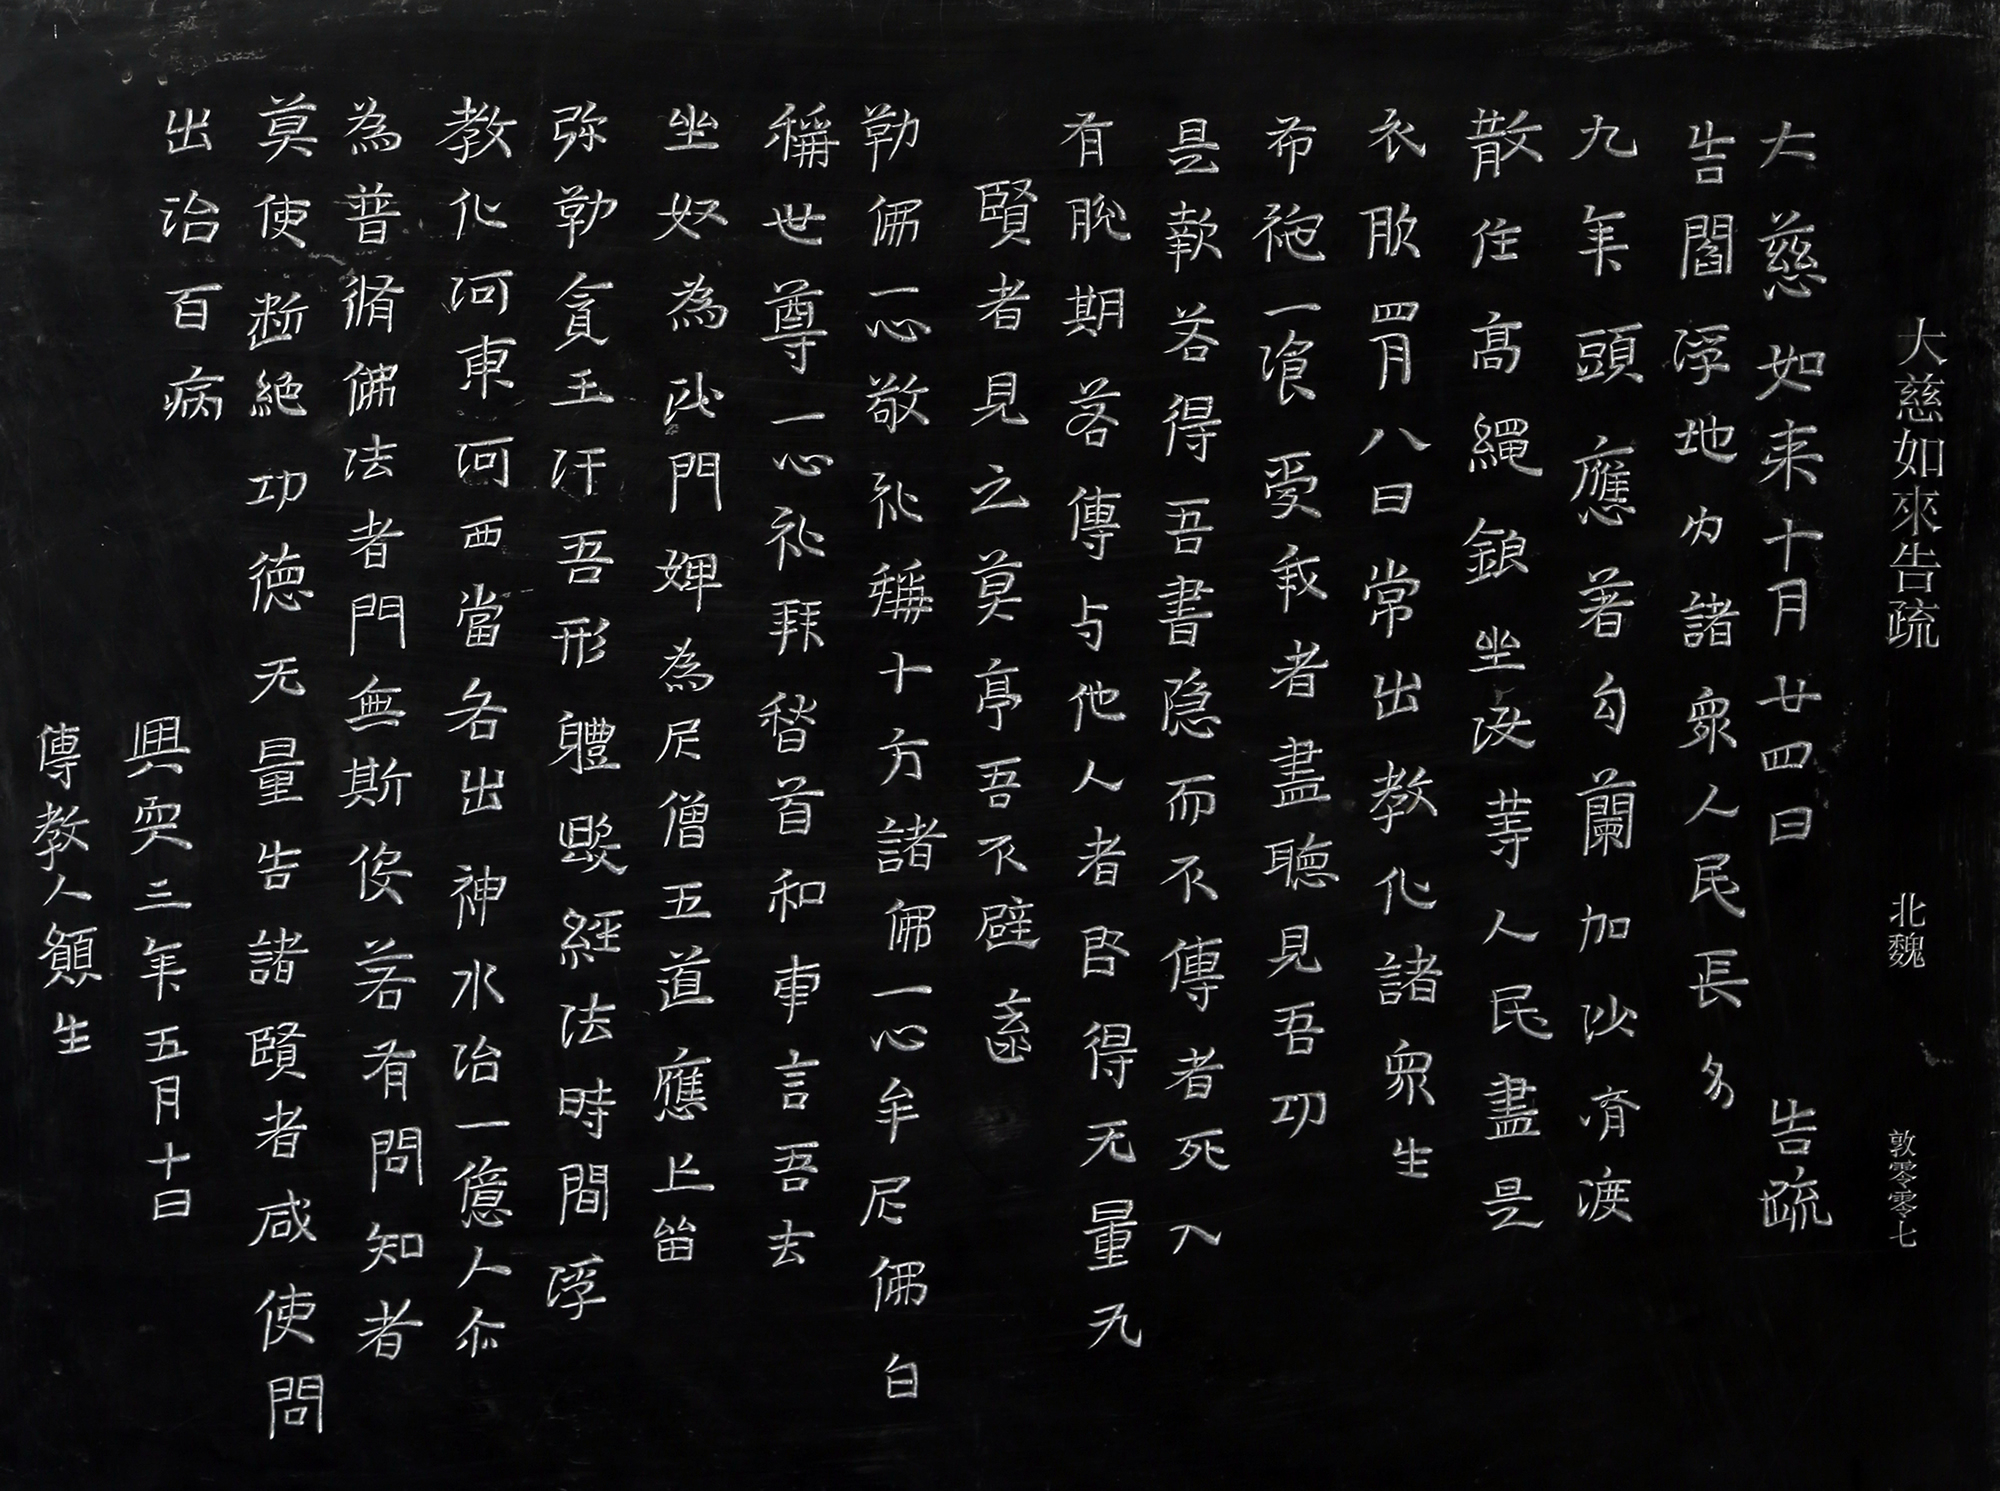 大慈如來告疏 北魏 敦零零七
大慈如来十月廿四日 告疏
告閻浮地內諸眾人民長多
九年頭應著勾蘭加沙脊渡
散住高繩鎖坐波苐人民盡是
衣服四月八日常出教化諸眾生
布袍一飡受我者盡聽見吾功
是欺若得吾書隐而不傳者死入
有脫期若傳与他人者即得无量无
賢者見之莫辱吾不避遠
勒佛一心敬礼稱十方諸佛一心牟尼佛白
稱世尊一心礼拜稽首和南言吾去
坐奴為沙門婢為尼僧五道應上
弥勒貪王汙吾形軆毀經法時間浮
教化河東河西當各出神水治一億人尒
為普脩佛法者門無斯侫若有問知者
莫使断絕功德无量告諸賢者咸使問
出治百病
興安三年五月十日
傳教人顉生